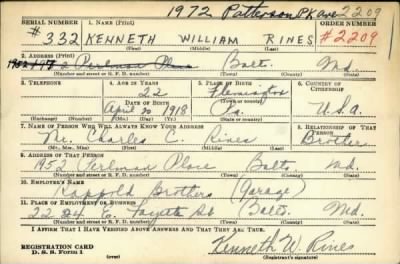 1972 Patterson Pk Ave 2209
SERIAL NUMBER 1. NAME (Print) ORDER NUMBER
# 332 KENNETH WILLIAM RINES #2209
(First) (Middle) (Last)
2. ADDRESS (Print)
Perlman Place Balto. Md.
(Number and street or R. F. D. number) (Town) (County) (State)
3. TELEPHONE 4. AGE IN YEARS 5. PLACE OF BIRTH 6. COUNTRY OF CITIZENSHIP
22 Flemington
DATE OF BIRTH (Town or county)
April 20 1918 Pa. U.S.A.
(Exchange) (Number) (Mo.) (Day) (Yr.) (State or country)
7. NAME OF PERSON WHO WILL ALWAYS KNOW YOUR ADDRESS 8. RELATIONSHIP OF THAT PERSON
Mr. Charles C. Rines Brother
(Mr., Mrs., Miss) (First) (Middle) (Last)
9. ADDRESS OF THAT PERSON
1957 Perlman Place Balto. Md.
(Number and street or R. F. D. number) (Town) (County) (State)
10. EMPLOYER'S NAME
Kappold Brothers (Garage)
11. PLACE OF EMPLOYMENT OR BUSINESS
2224 E. Fayette St Balto. Md.
(Number and street or R. F. D. number) (Town) (County) (State)
I AFFIRM THAT I HAVE VERIFIED ABOVE ANSWERS AND THAT THEY ARE TRUE.
REGISTRATION CARD
D. S. S. Form 1 (over)
Kenneth W. Rines
(Registrant's signature)